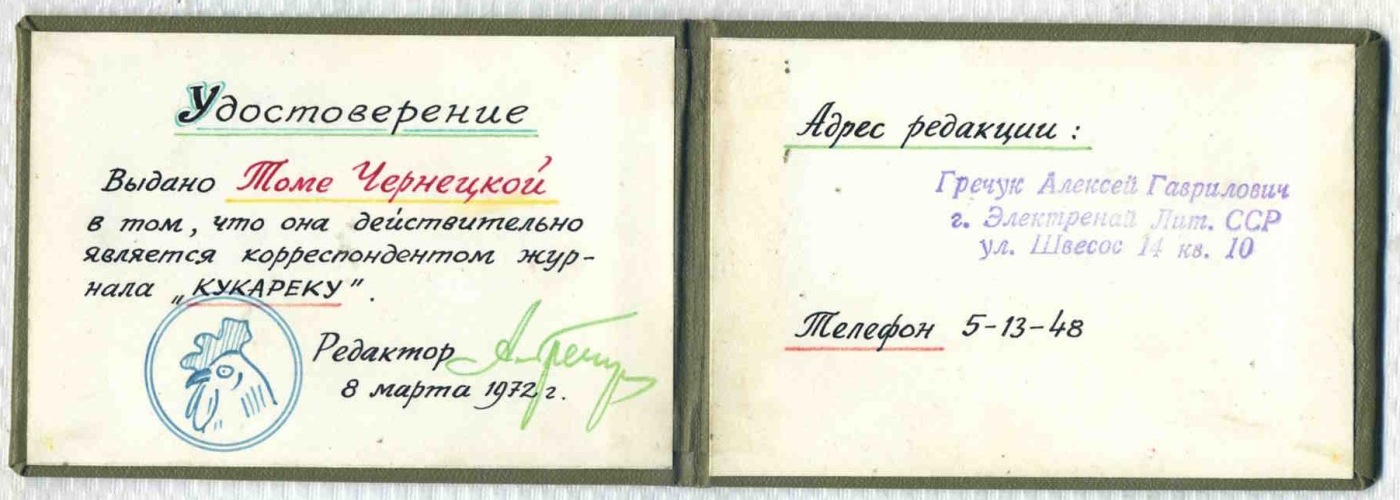 Удостоверение
Выдано Томе Чернецкой
в том, что она действительно
является корреспондентом жур-
нала „КУКАРЕКУ".
Редактор А. Гречук
8 марта 1972 г.
Адрес редакции:
Гречук Алексей Гаврилович
г. Электренай Лит. ССР
ул. Швесос 14 кв. 10
Телефон 5-13-48